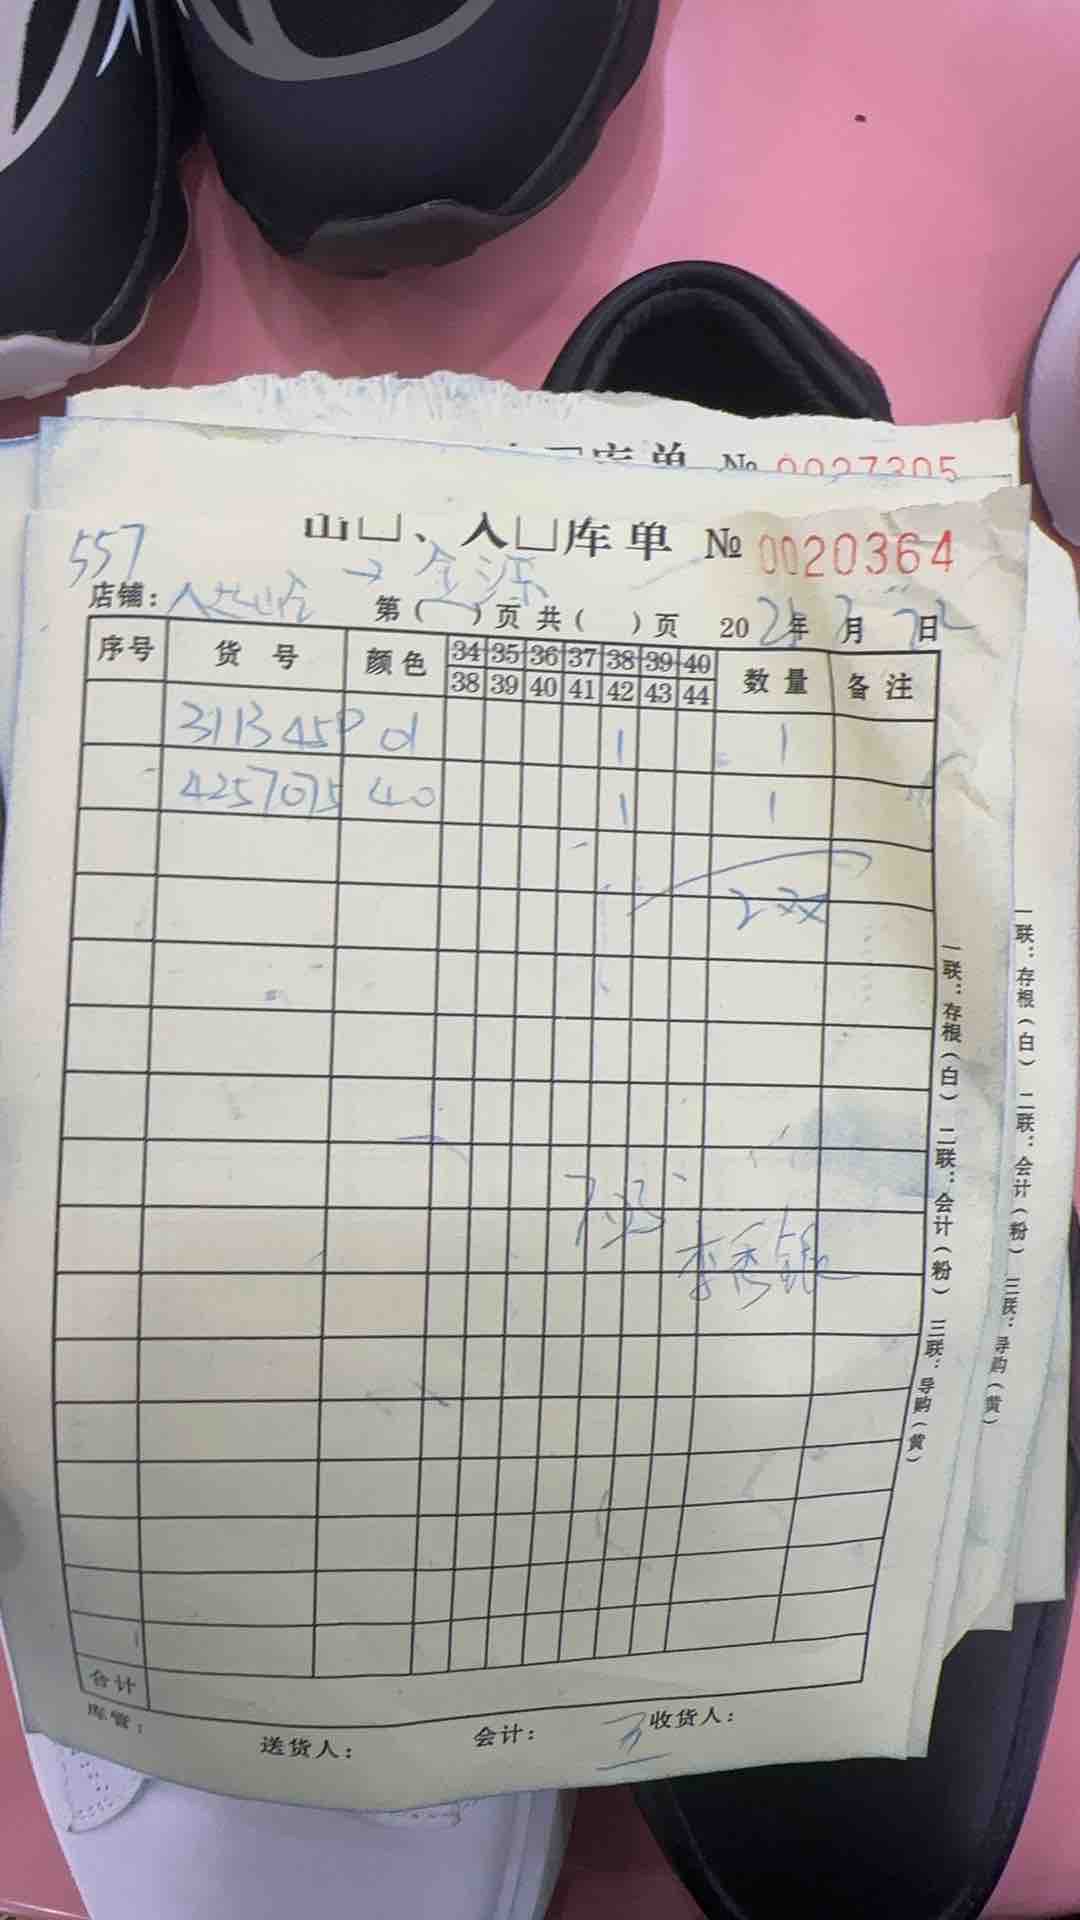 库单 № 0027305
出□、入□库单 № 0020364
557
→ 金源
店铺：
第（ ）页 共（ ）页 20 25年 月 日
序号 货号 颜色 34 35 36 37 38 39 40 数量 备注
38 39 40 41 42 43 44
311345 01 1 1
4257075 40 1 1
2双
李秀银
合计
库管：
送货人： 会计： 收货人：
一联：存根（白） 二联：会计（粉） 三联：导购（黄）
一联：存根（白） 二联：会计（粉） 三联：导购（黄）